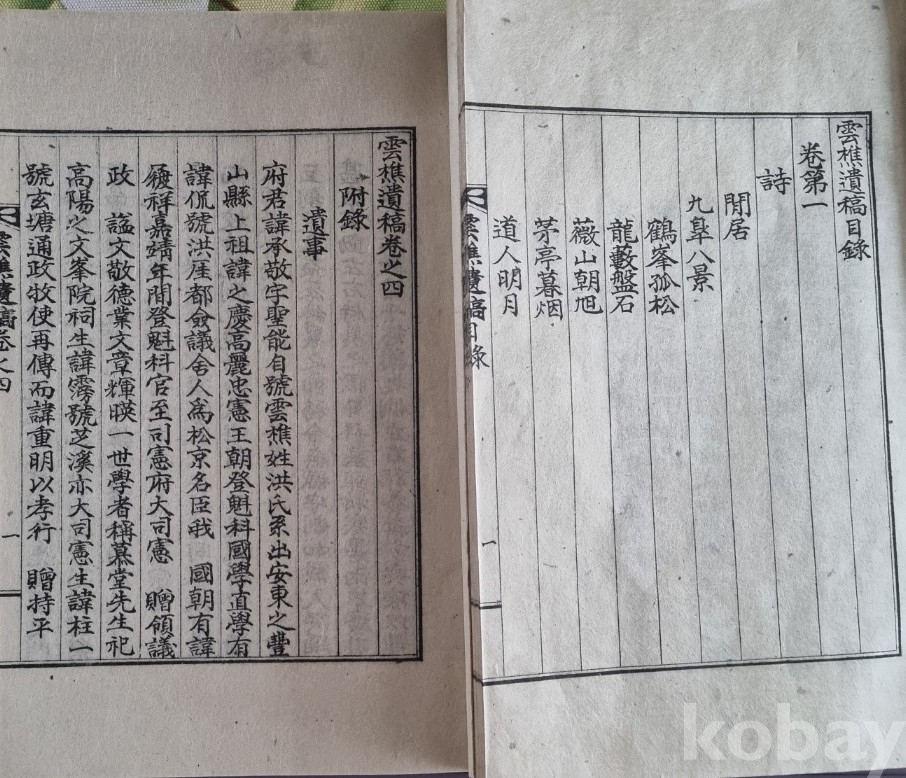 雲樵遺稿目錄
卷第一
詩
閒居
九臯八景
鶴峯孤松
龍藪盤石
薇山朝旭
茅亭暮烟
道人明月
雲樵遺稿目錄 一
雲樵遺稿卷之四
附錄
遺事
府君諱承敬字聖能自號雲樵姓洪氏系出安東之豐
山縣上祖諱之慶高麗忠憲王朝登魁科國學直學有
諱侃號洪厓都僉議舍人爲松京名臣我 國朝有諱
履祥嘉靖年間登魁科官至司憲府大司憲 贈領議
政 謚文敬德業文章輝暎一世學者稱慕堂先生祀
高陽之文峯院祠生諱霶號芝溪亦大司憲生諱柱一
號玄塘通政牧使再傳而諱重明以孝行 贈持平
雲樵遺稿卷之四 一
kobay